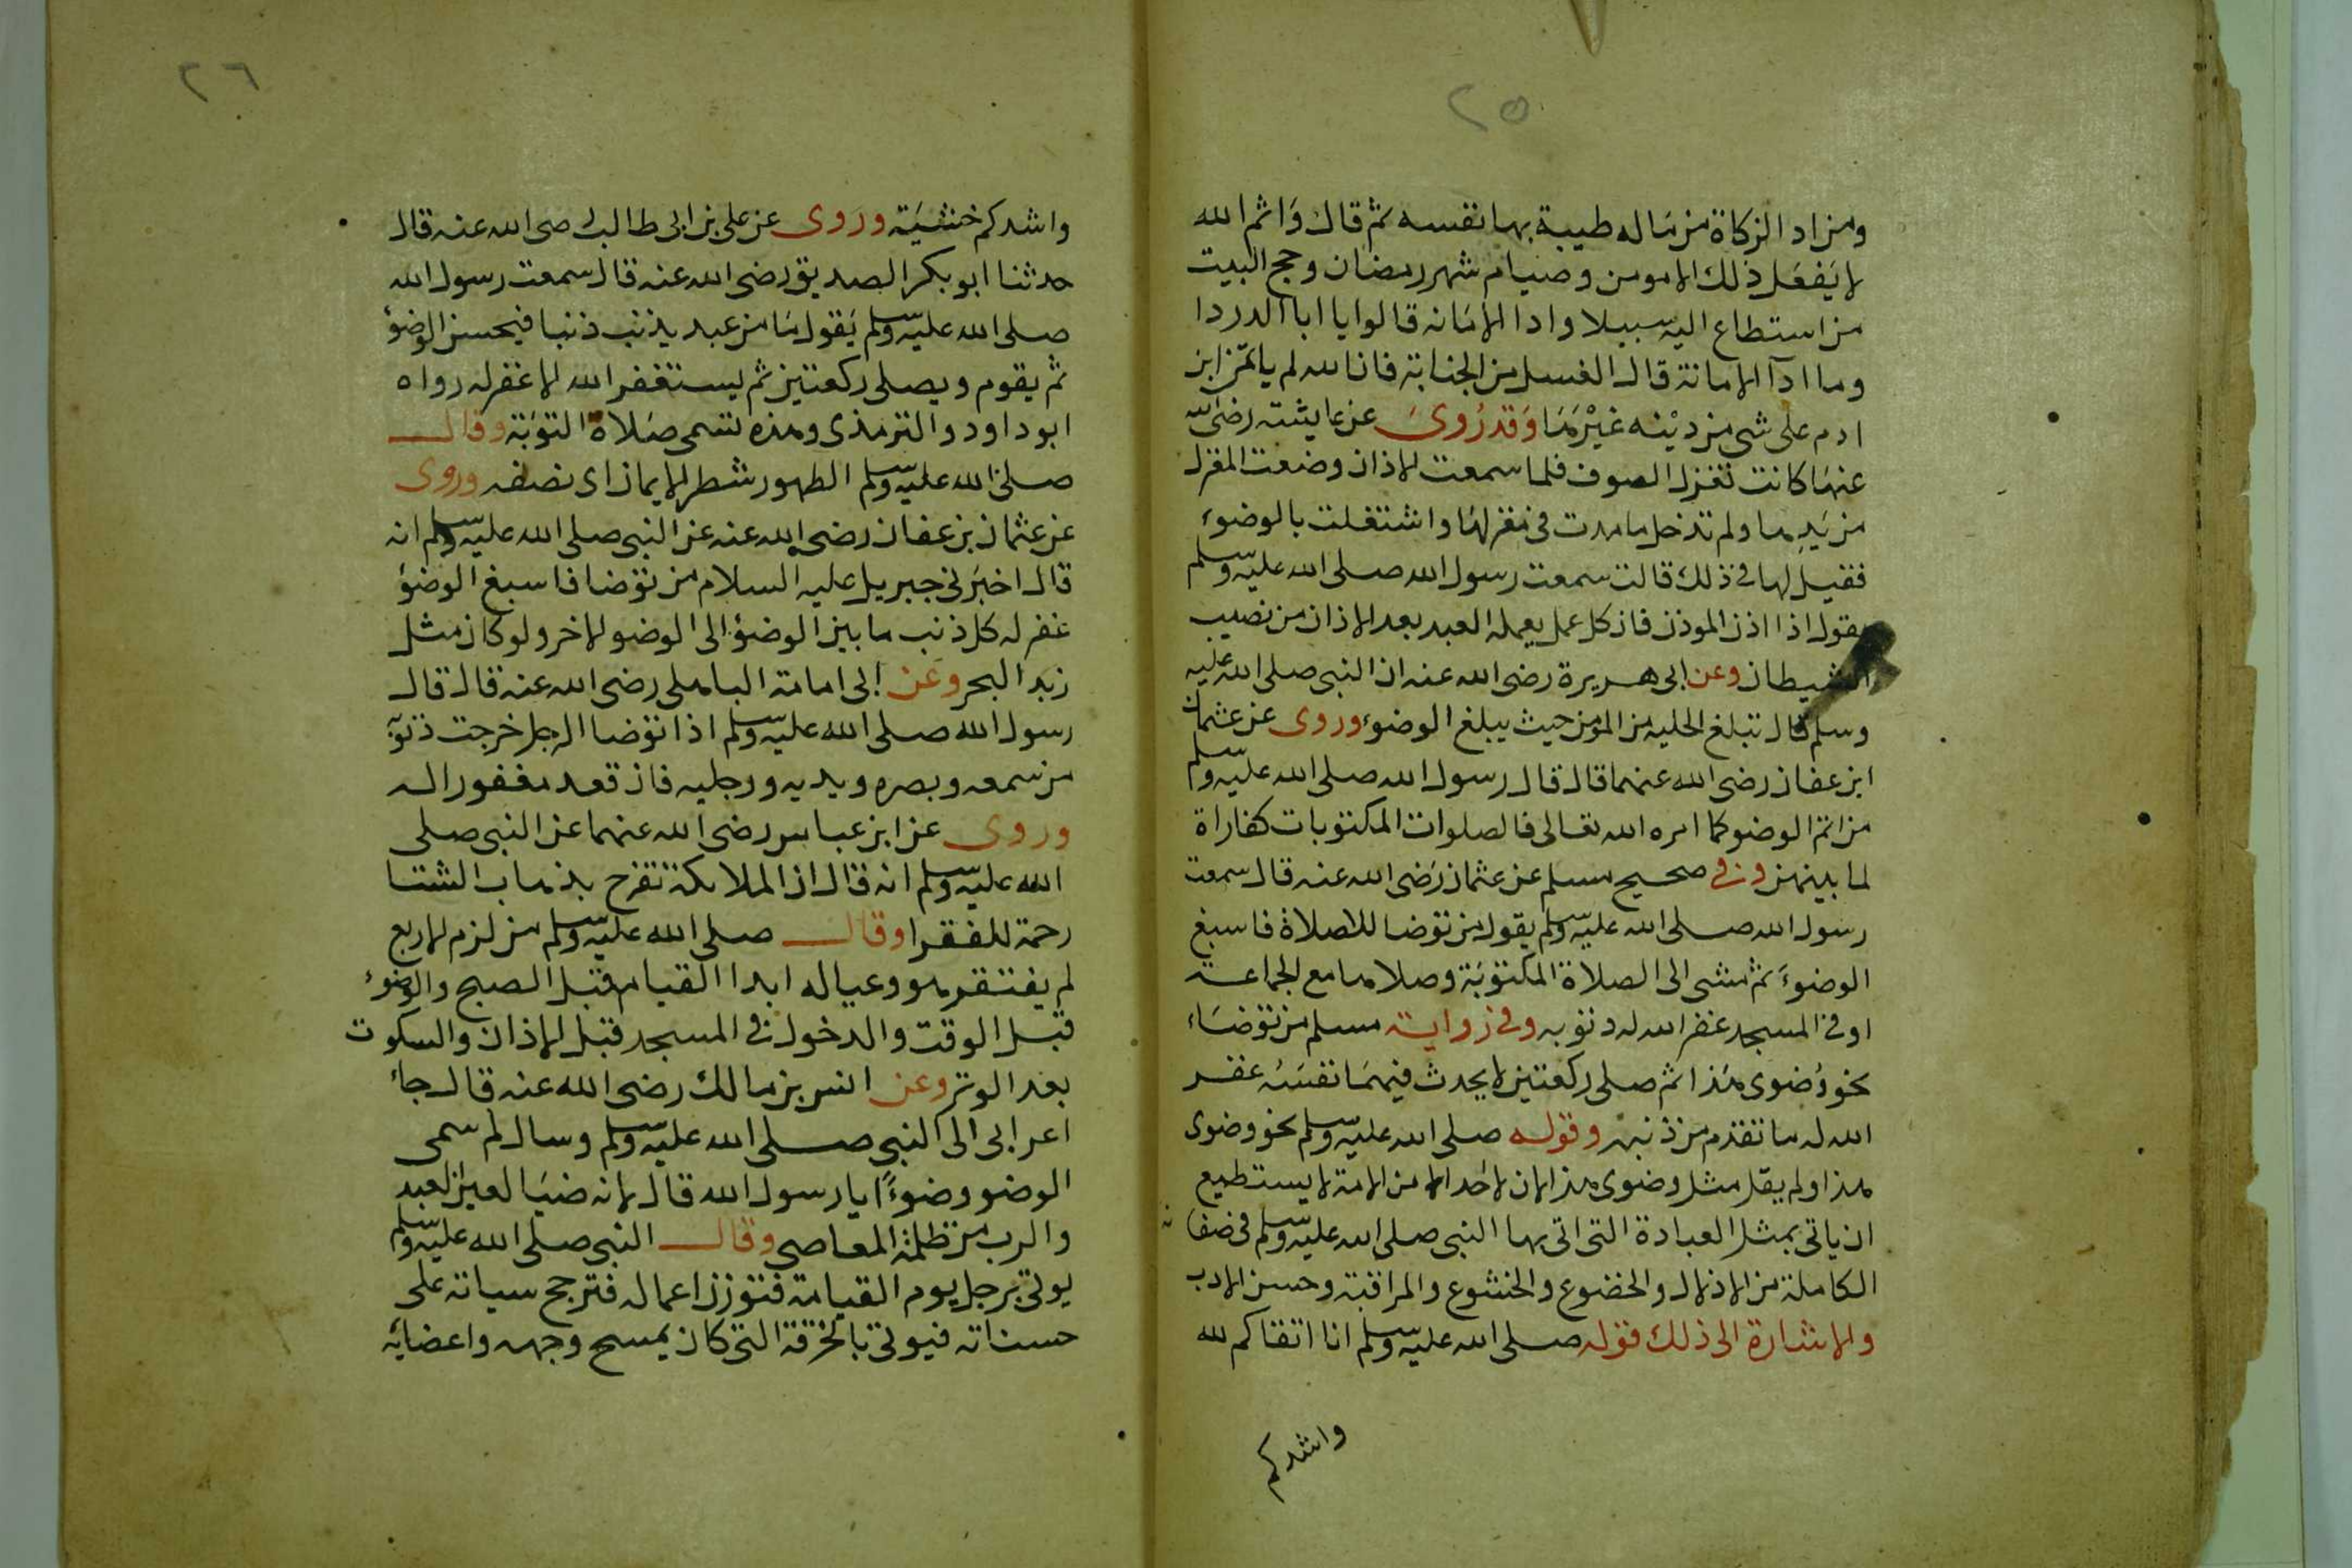 ٢٥
ومن ادا الزكاة من ماله طيبة بها نفسه ثم قال وَاثم الله
لا يَفعَل ذلك الا مومن وصيام شهر رمضان وحج البيت
من استطاع اليه سبيلا وادا الامَانه قالوا يا ابا الدردا
وما ادآ الامانة قال الغسل من الجنابة فان الله لم ياتمن ابن
ادم على شى من ديْنه غيْرهَا وَقد رُوىَ عن عايشة رضى الله
عنهَا كانت تغزل الصوف فلما سمعت الاذان وضعت المغزل
من يَدِها ولم تدخل ما مدت فى مغزلهَا واشتغلت بالوضوء
فقيل لها فى ذلك قالت سمعت رسول الله صلى الله عليه وسلم
يقول اذا اذن الموذن فان كل عمل يعمله العبد بعد الاذان من نصيب
الشيطان وعن ابى هريرة رضى الله عنه ان النبى صلى الله عليه
وسلم قال تبلغ الحليه من المومن حيث يبلغ الوضوء وروى عن عثمان
ابن عفان رضى الله عنهما قال قال رسول الله صلى الله عليه وسلم
من اتم الوضو كما امره الله تعالى فالصلوات المكتوبات كفاراة
لما بينهن وفى صحيح مسلم عن عثمان رَضى الله عنه قال سمعت
رسول الله صلى الله عليه وسلم يقول من توضا للاصلاة فاسبغ
الوضوءَ ثم مشى الى الصلاة المكتوبَة وصلاها مع الجماعة
او فى المسجد غفر الله له ذنوبه وفى رواية مسلم من توضَاء
نحو وُضوى هَذا ثم صلى ركعتين لا يحدث فيهمَا نفسَهُ غفر
الله له ما تقدم من ذنبه وقوله صلى الله عليه وسلم نحو وضوى
هذا ولم يقل مثل وضوى هذا لان لاحد من الامة لا يستطيع
ان ياتى بمثل العبادة التى اتى بها النبى صلى الله عليه وسلم فى صفاته
الكاملة من الاذلال والخضوع والخشوع والمراقبة وحسن الادب
والاشارة الى ذلك قوله صلى الله عليه وسلم انا اتقاكم لله
واشدكم
٢٦
واشدكم خشيَة وروى عن على بن ابى طالب رضى الله عنه قال
حدثنا ابو بكر الصديق رضى الله عنه قال سمعت رسول الله
صلى الله عليه وسلم يَقول مَا من عبد يذنب ذنبا فيحسن الوضؤ
ثم يقوم ويصلى ركعتين ثم يستغفر الله الا غفر له رواه
ابو داود والترمذى وهذه تسمى صَلاة التوَبَة وقال
صلى الله عليه وسلم الطهور شطر الايمان اى نصفه وروى
عن عثمان بن عفان رضى الله عنه عن النبى صلى الله عليه وسلم انه
قال اخبَرنى جبريل عليه السلام من توضا فاسبغ الوضؤ
غفر له كل ذنب ما بين الوضؤ الى الوضو الاخر ولو كان مثل
زبد البحر وعَن ابى امامة الباهلى رضى الله عنه قال قال
رسول الله صلى الله عليه وسلم اذا توضا الرجل خرجت ذنوبه
من سمعه وبصره ويديه ورجليه فان قعد مغفورا له
وروى عن ابن عباس رضى الله عنهما عن النبى صلى
الله عليه وسلم انه قال ان الملايكة تفرح بذهاب الشتا
رحمة للفقرا وقال صلى الله عليه وسلم من لزم الاربع
لم يفتقر هو وعياله ابدا القيام قبل الصبح والوضوء
قبل الوقت والدخول فى المسجد قبل الاذان والسكوت
بعد الوتر وعن انس بن مالك رضى الله عنه قال جاء
اعرابى الى النبى صلى الله عليه وسلم وسال لم سمى
الوضو وضوءًا يا رسول الله قال لانه ضيَا لعين العبد
والرب من ظلمة المعاصى وقال النبى صلى الله عليه وسلم
يوتى برجل يوم القيامة فتوزن اعماله فترجح سياته على
حسناته فيوتى بالخرقة التى كان يمسح وجهه واعضايه